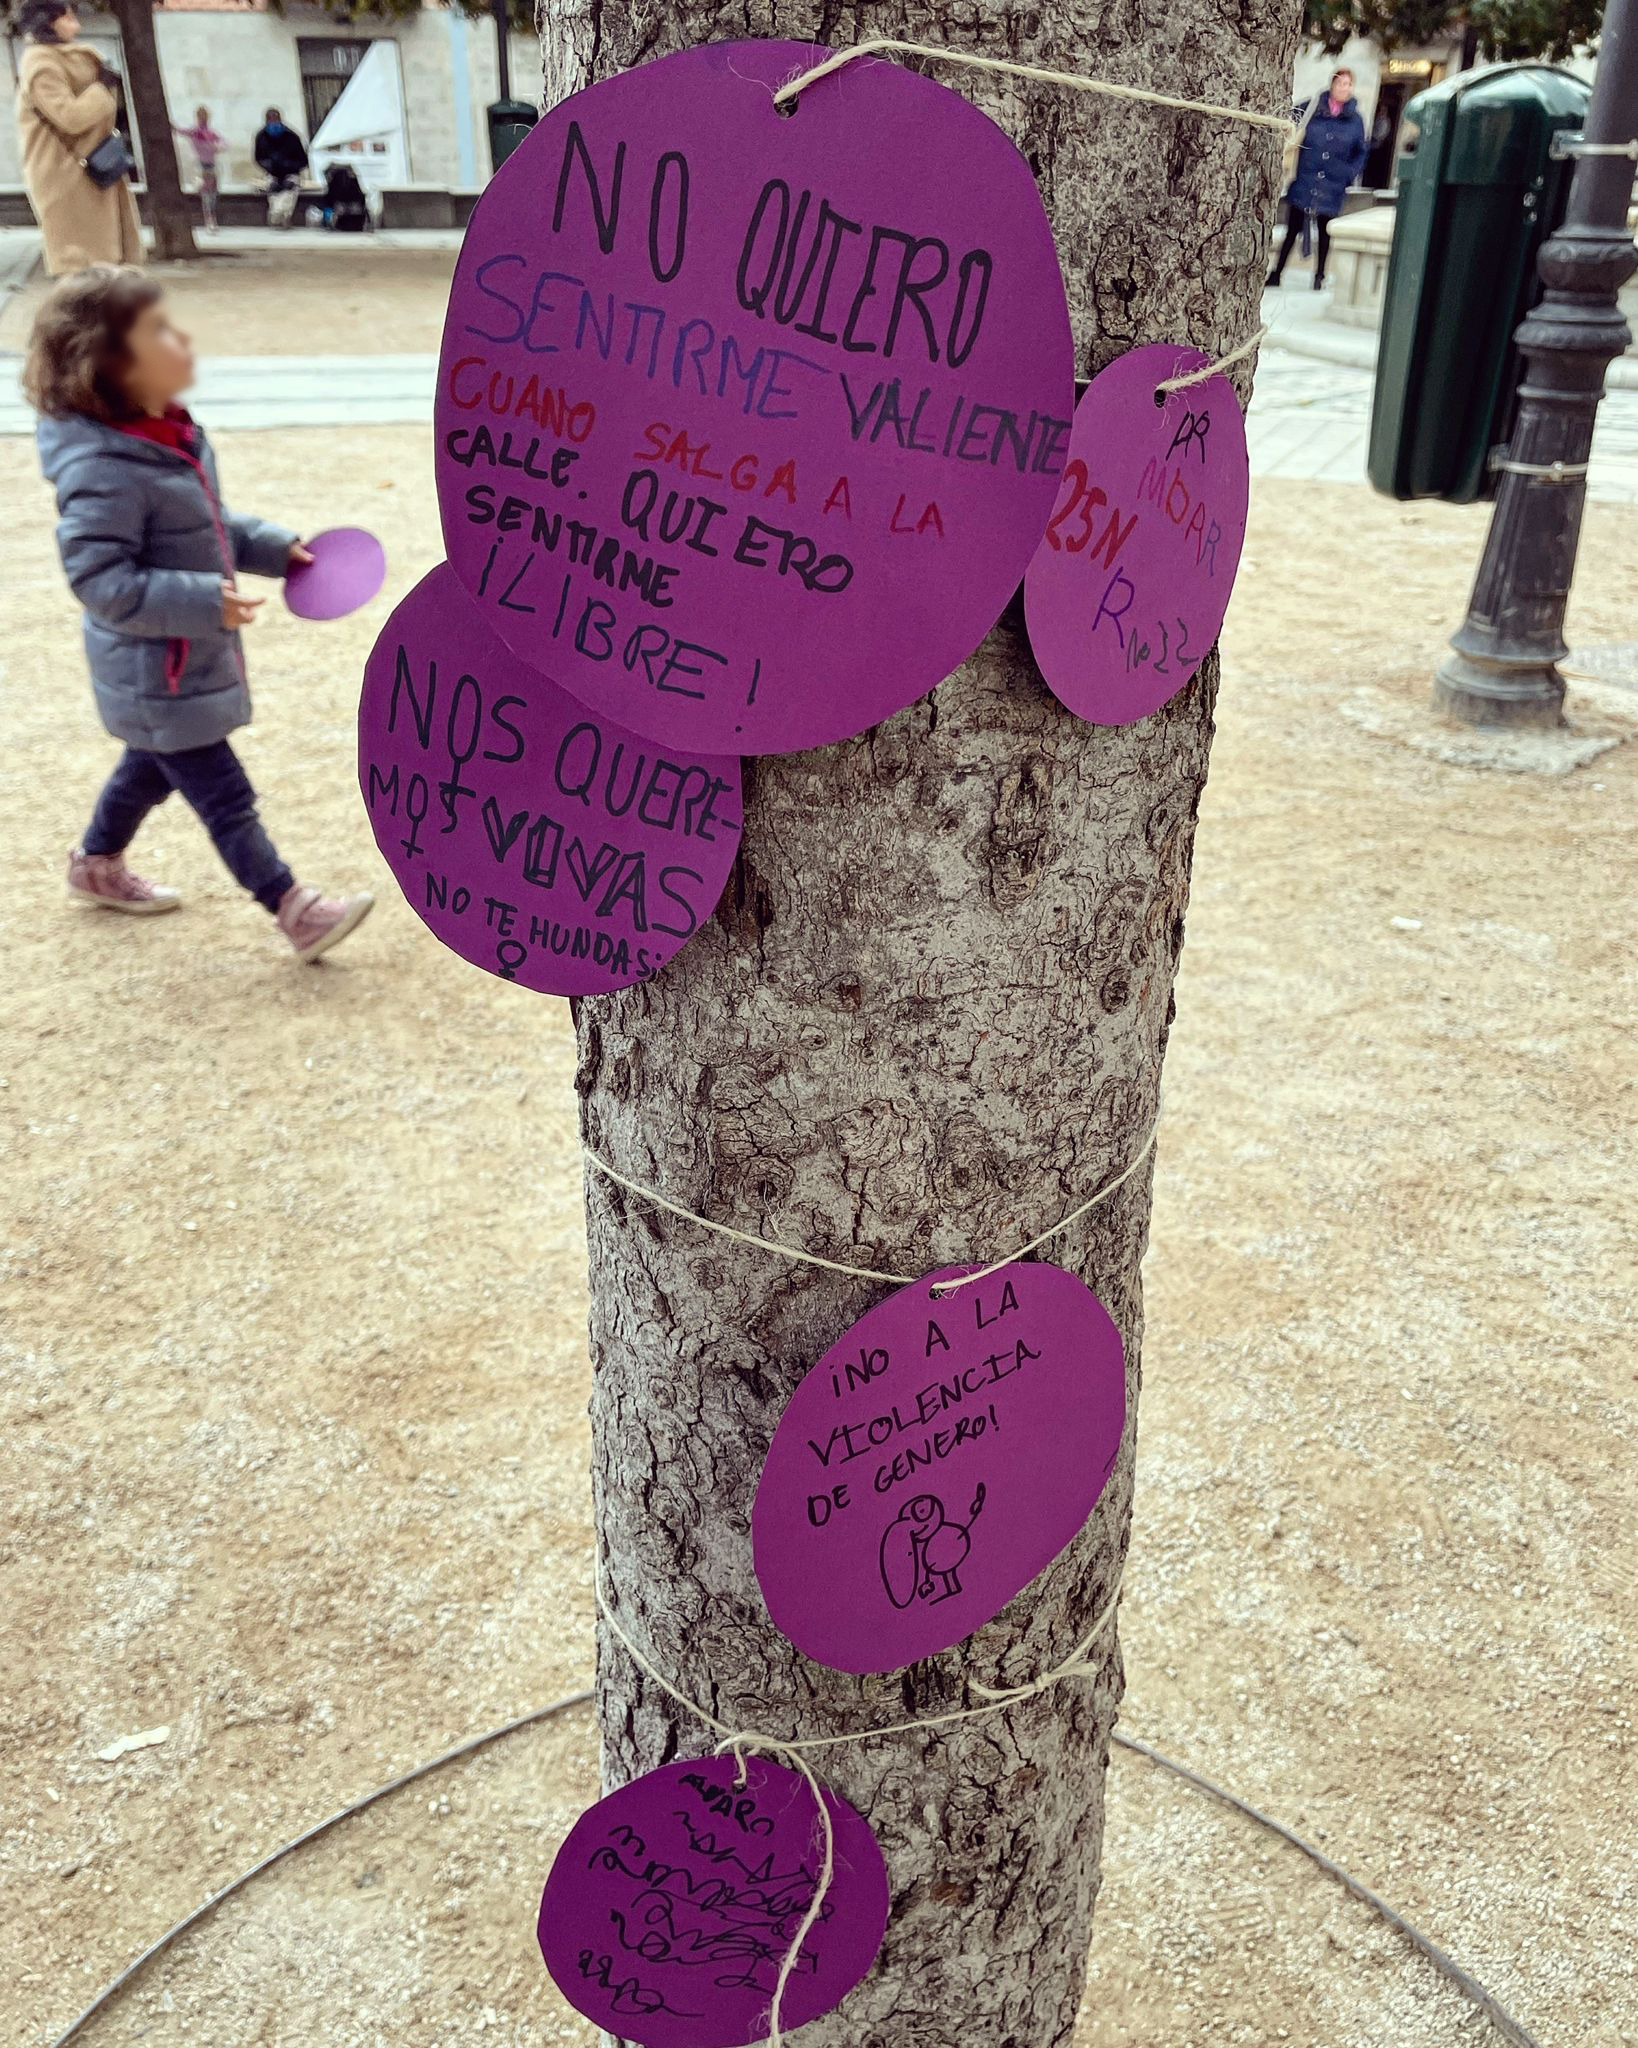 NO QUIERO
SENTIRME VALIENTE
CUANO SALGA A LA
CALLE. QUIERO
SENTIRME
¡LIBRE!
25N
NOS QUERE-
MOS VIVAS
NO TE HUNDAS¡
¡NO A LA
VIOLENCIA
DE GENERO!